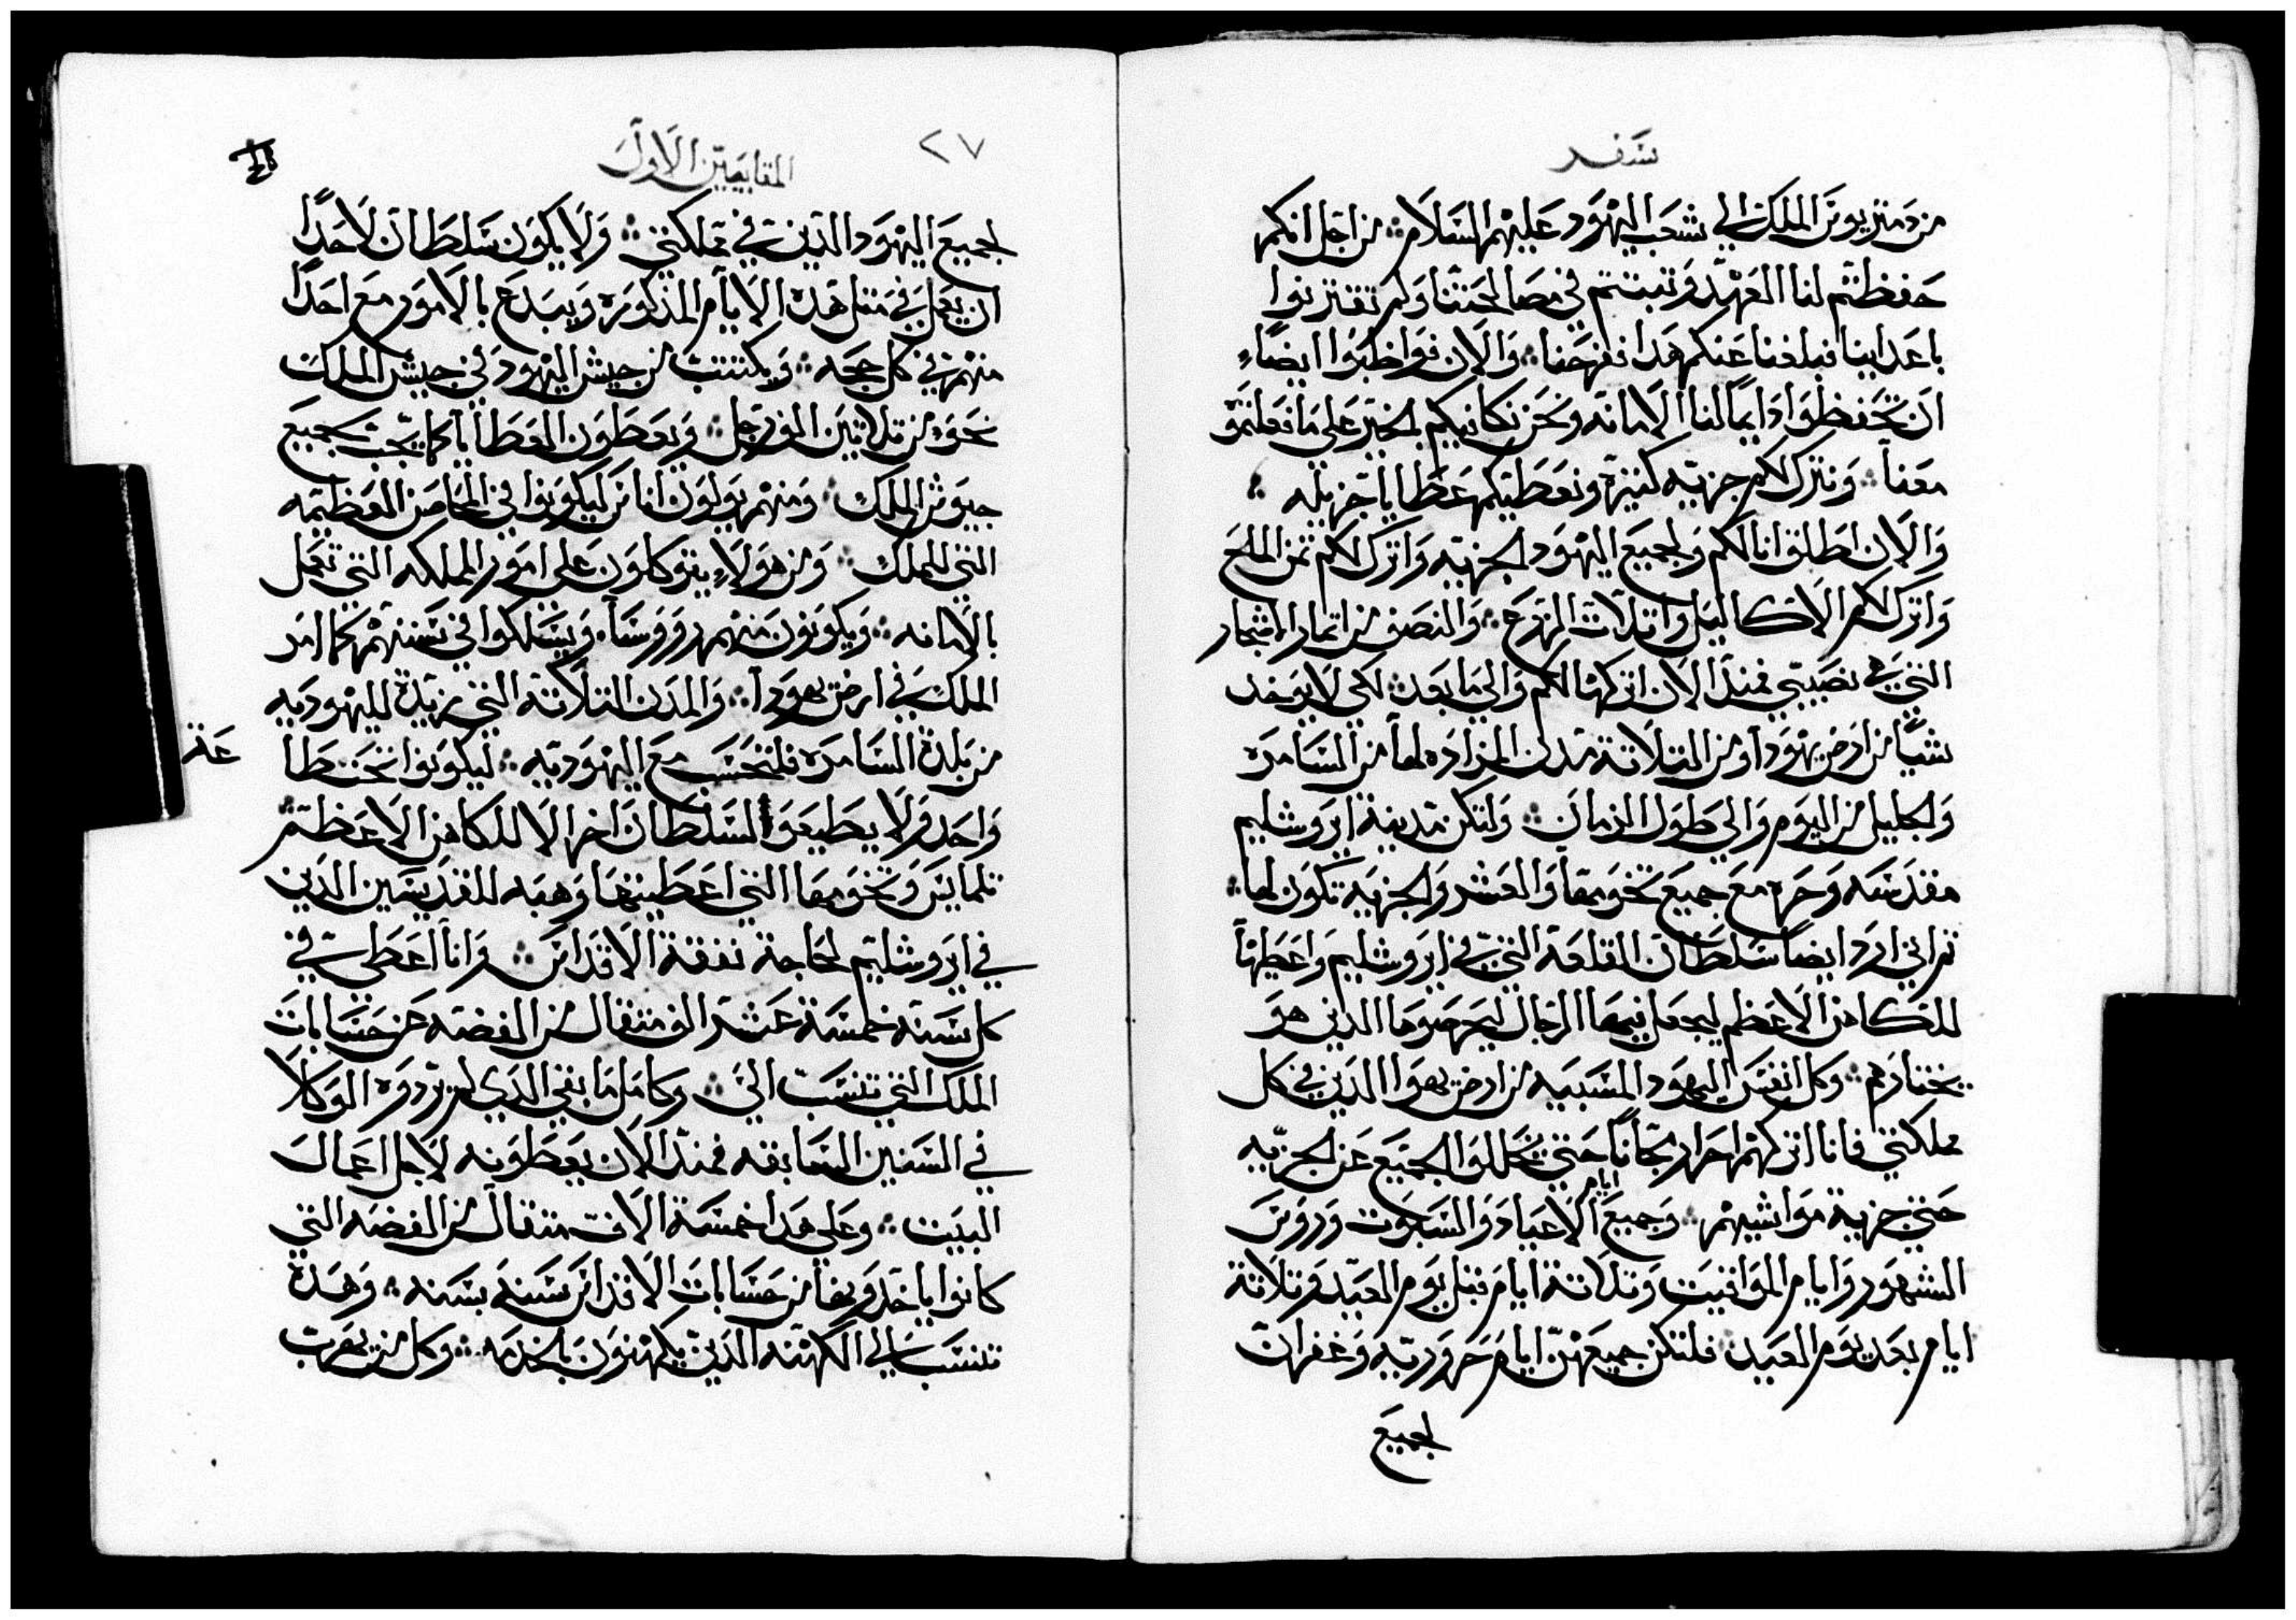 سفر
من دمتريوس الملك الي شعب اليهود عليهم السلام ∴ من اجل انكم
حفظتم لنا العهد وتبتم في مصالحتنا ولم تقتربوا
باعداينا فبلغنا عنكم هدا ففرحنا ∴ والان فواظبوا ايضاً
ان تحفظوا دايماً لنا الامانه ونحن نكافيكم بالخير علي ما فعلتموه
معنا ∴ ونترك لكم جزيه كتيرة ونعطيكم عطايا جزيله ∴
والان اطلق انا لكم ولجميع اليهود الجزيه واترك لكم تمن الملح
واترك لكم الاكاليل واتلات الزرع ∴ والنصف من اتمار الاشجار
التي هي نصيبي فمند الان اتركها لكم والي ما بعد ∴ لكي لا يوخد
شياً من ارض يهودا ومن التلاتة مدن المزاده لها من السامره
والجليل من اليوم والي طول الزمان ∴ ولتكن مدينة ايروشليم
مقدسه وحره مع جميع تخومها والعشر والجزيه تكون لها ∴
ثم اني ارد ايضا سلطان القلعة التي في ايروشليم واعطيها
للكاهن الاعظم ليجعل فيها الرجال ليحرصوها الدين هو
يختارهم ∴ وكل انفس اليهود المسبيه من ارض يهودا الدين في كل
مملكتي فانا اتركهم احرار مجاناً حتي يتخللوا الجميع عن الجزيه
حتي جزية مواشيهم ∴ وجميع ايام الاعياد والسبوت وروس
الشهور وايام المواقيت وتلاتة ايام قبل يوم العيد وتلاتة
ايام بعد يوم العيد ∴ فلتكن جميعهن ايام حروريه وغفران
لجميع
٢٧
المقابيين الاول
لجميع اليهود الدين في مملكتي ∴ ولا يكون سلطان لاحداً
ان يعمل في متل هده الايام المذكوره ويبدع بالامور مع احداً
منهم في كل حجه ∴ ويكتتب من جيش اليهود في جيش الملك
نحو من تلاتين الف رجل ∴ ويعطون العطايا كما يجب لجميع
جيوش الملك ∴ ومنهم يولون اناس ليكونوا في الحاصن العظيمه
التي للملك ∴ ومن هولاء يتوكلون علي امور المملكه التي تعمل
بالامانه ∴ ويكونون منهم رووسا ويسلكوا في سننهم كما امر
الملك في ارض يهودا ∴ والمدن التلاتة التي مزيدة لليهوديه
من بلدة السامره فلتحسب مع اليهوديه ∴ ليكونوا تحت طا
عة
واحد ولا يطيعوا لسلطان اخر الا للكاهن الاعظم ∴
تلمايس وتخومها التي اعطيتها وهبه للقديسين الدين
في ايروشليم لحاجة نفقة الاقداس ∴ وانا اعطي في
كل سنة خمسة عشر الف متقال من الفضه عن حسابات
الملك التي تنسب الي ∴ وكامل ما بقي الدي لم يردوه الوكلا
في السنين السابقه فمند الان يعطونه لاجل اعمال
البيت ∴ وعلي هدا خمسة الاف متقال من الفضه التي
كانوا ياخدوها من حسابات الاقداس سنه بسنه ∴ وهده
تنسب الي الكهنه الدين يكهنون بالخدمه ∴ وكل من يهرب